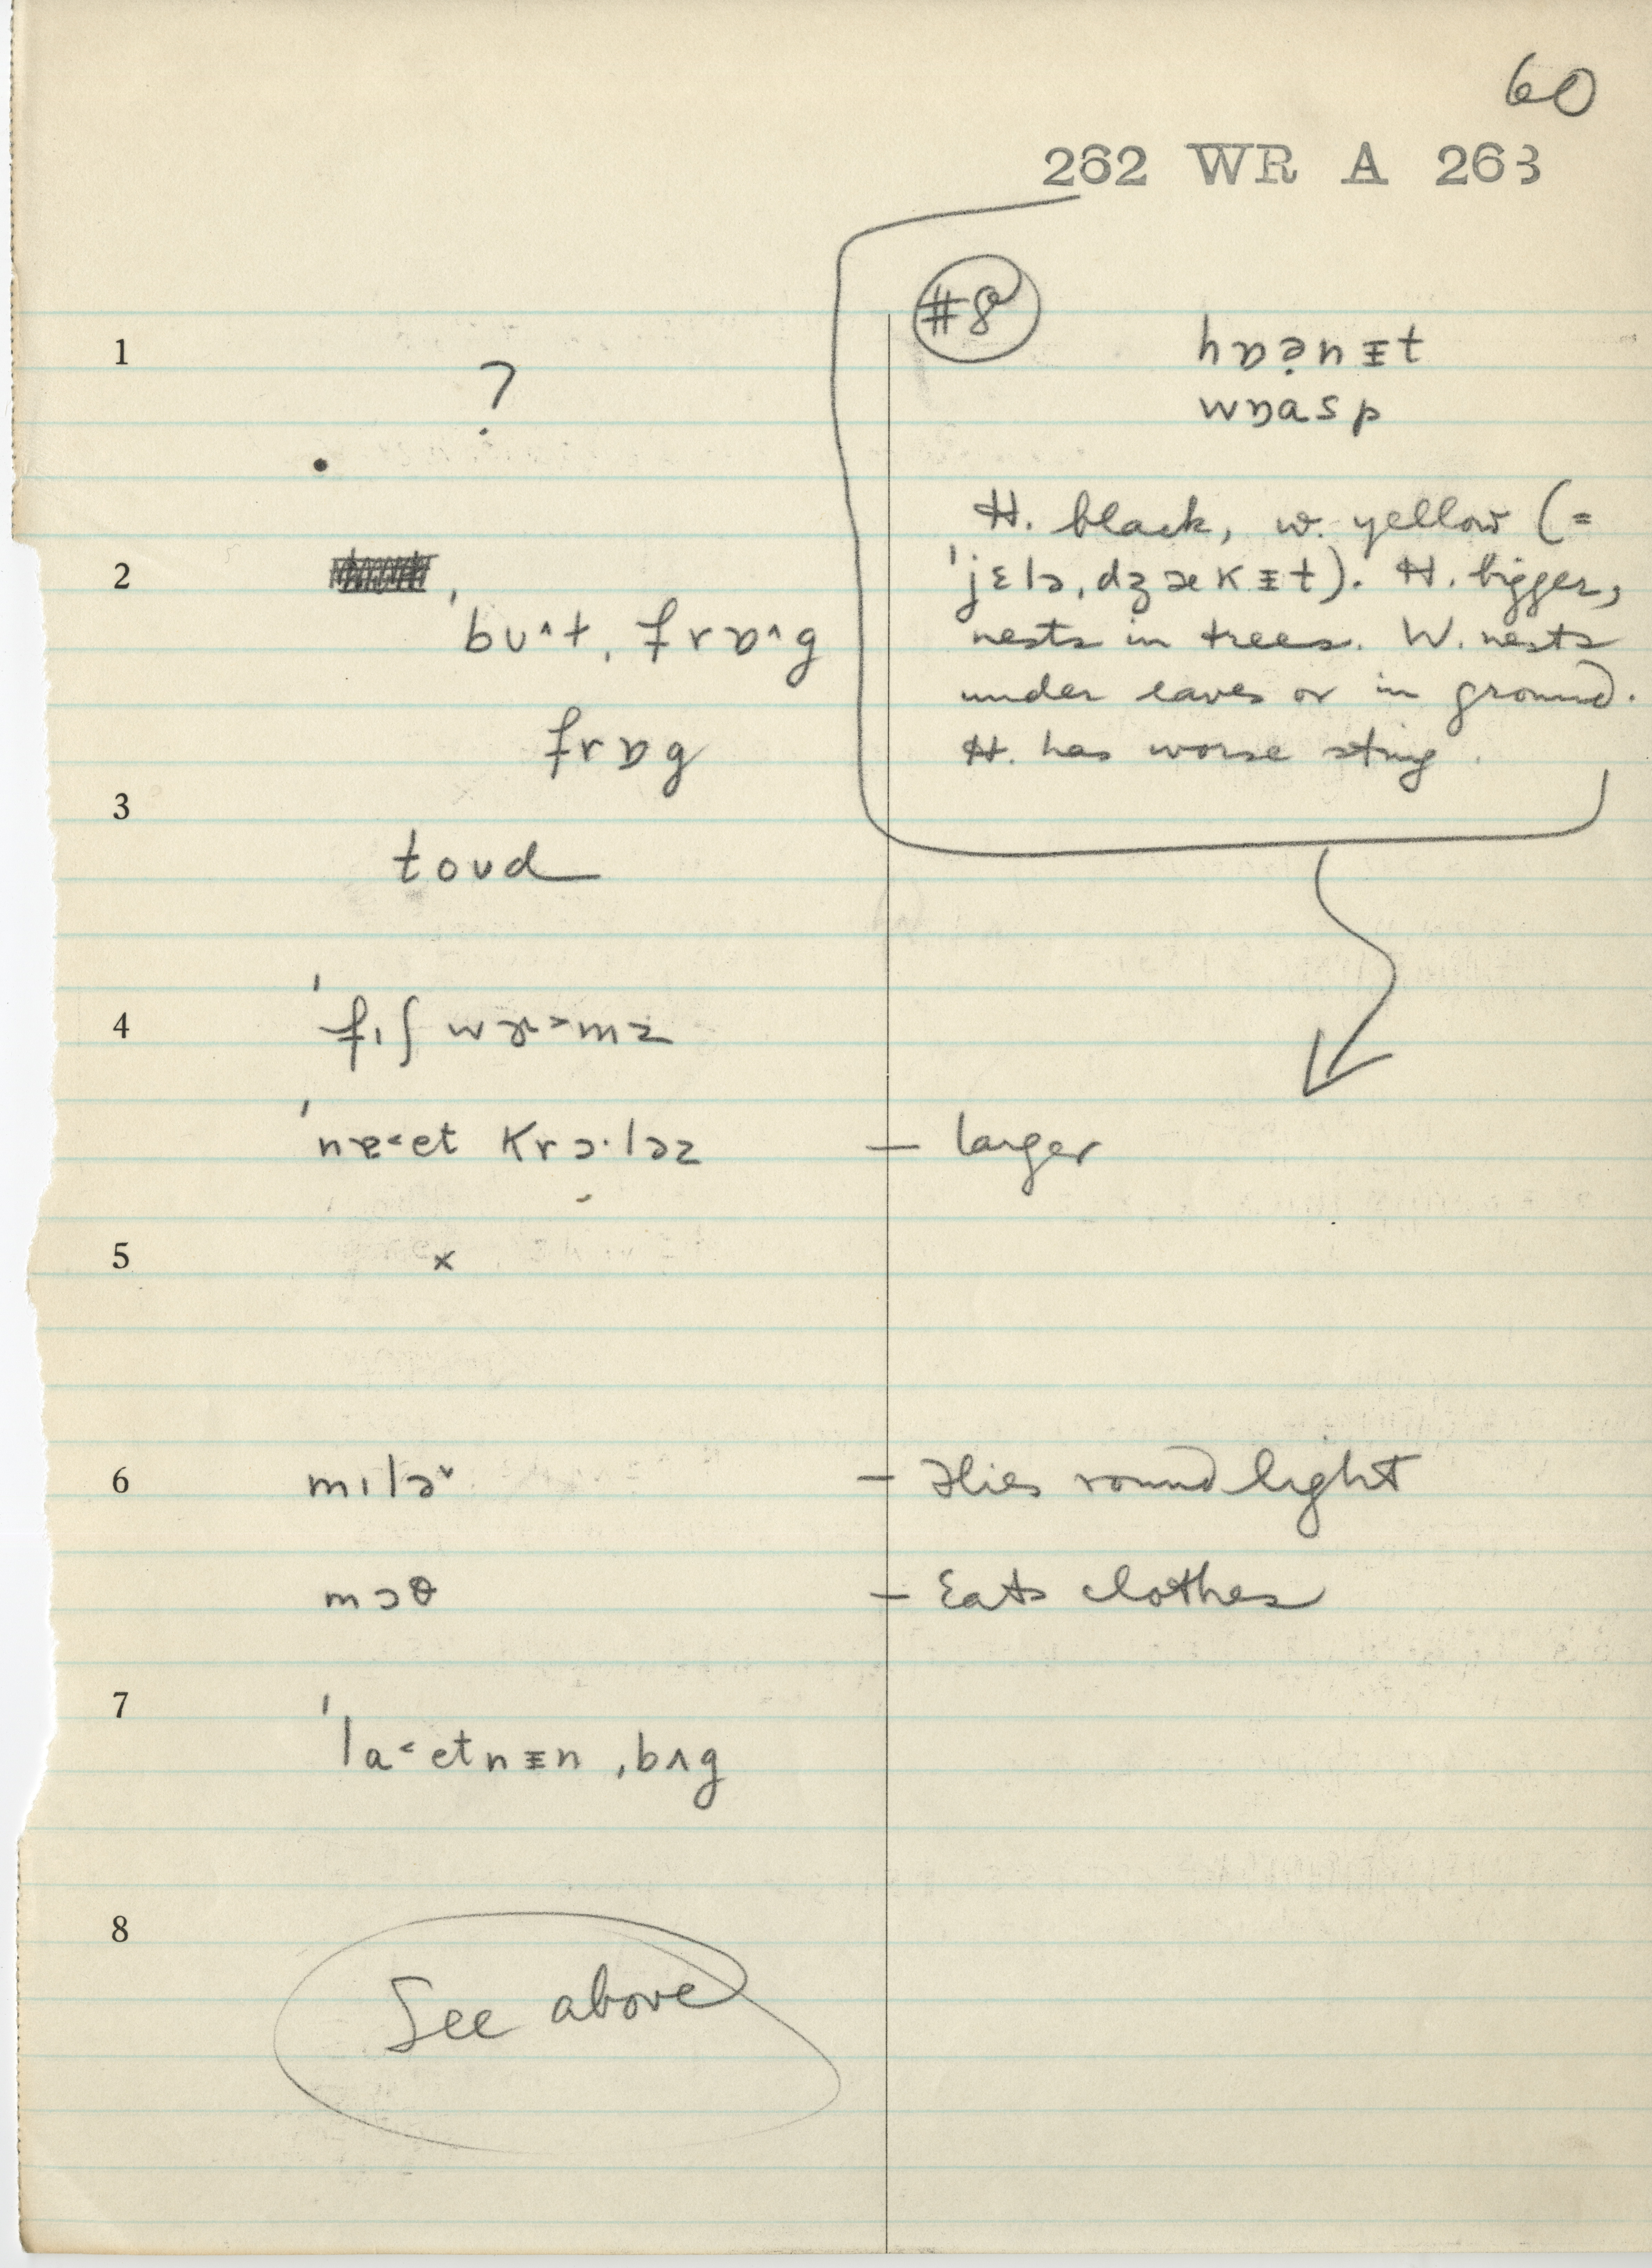 60
262 WR A 263
#8
hɒə̣nᵻt
wɒasp
H. black, w. yellow (=
ˈjɛlə,dʒækᵻt). H. bigger,
nests in trees. W. nests
under eaves or in ground.
H. has worse sting.
1
?
2
ˈbʊ^t,frɒ^g
frɒg
3
toʊd
4
ˈfɪʃwɝ>mz
ˈnɐ<et krɔ·ləz – larger
5
x
6
mɪləˇ – Flies round light
mɔθ – Eats clothes
7
ˈla<etnᵻn ,bʌg
8
See above